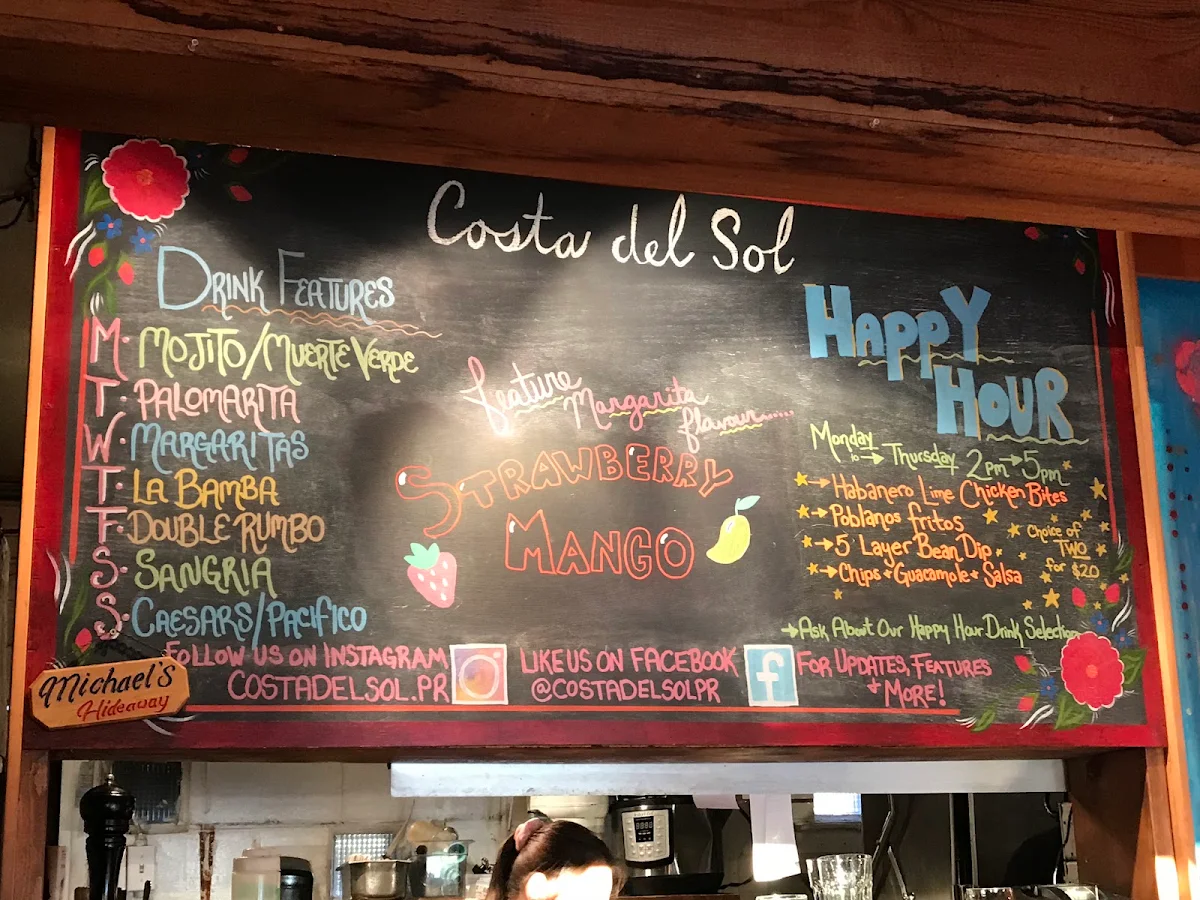 Costa del Sol
DRINK FEATURES
M. MOJITO/MUERTE VERDE
T. PALOMARITA
W. MARGARITAS
T. LA BAMBA
F. DOUBLE RUMBO
S. SANGRIA
S. CAESARS/PACIFICO
feature
Margarita
flavour......
STRAWBERRY
MANGO
HAPPY
HOUR
Monday
to → Thursday 2pm → 5pm
→ Habanero Lime Chicken Bites
→ Poblanos fritos
→ 5 Layer Bean Dip
→ Chips + Guacamole + Salsa
Choice of
TWO
for $20
→ Ask About Our Happy Hour Drink Selection
FOLLOW US ON INSTAGRAM
COSTADELSOL.PR
LIKE US ON FACEBOOK
@COSTADELSOLPR
f
FOR UPDATES, FEATURES
+ MORE!
Michael's
Hideaway